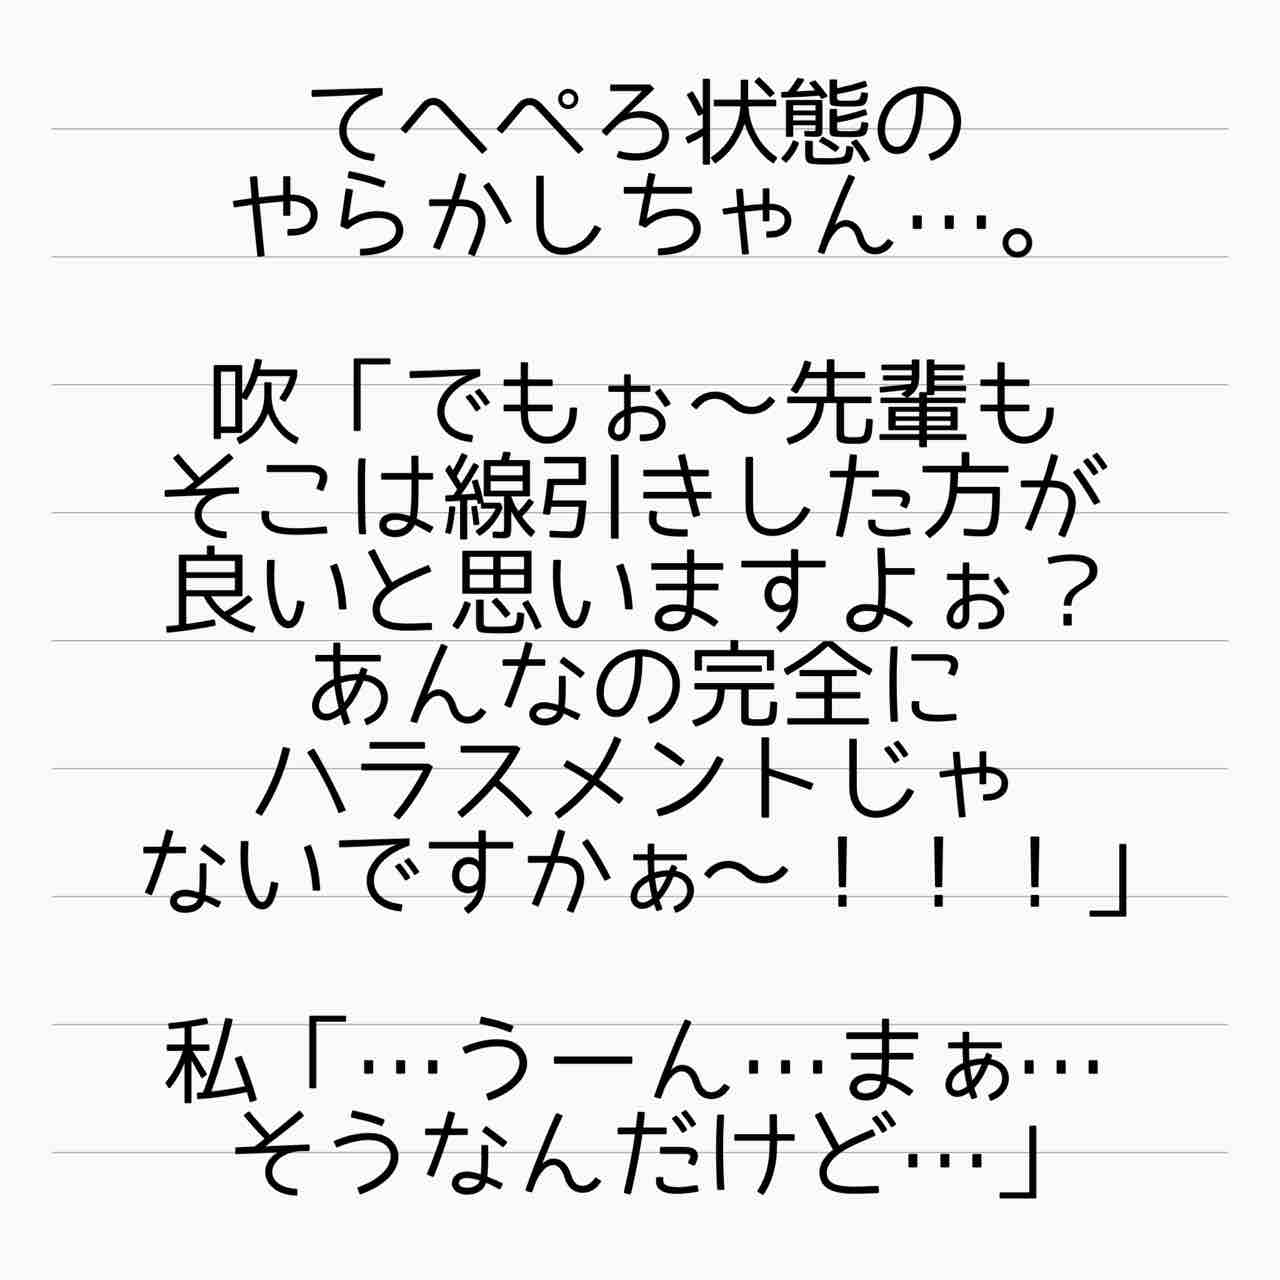 てへぺろ状態の
やらかしちゃん…。
吹「でもぉ〜先輩も
そこは線引きした方が
良いと思いますよぉ？
あんなの完全に
ハラスメントじゃ
ないですかぁ〜！！！」
私「…うーん…まぁ…
そうなんだけど…」